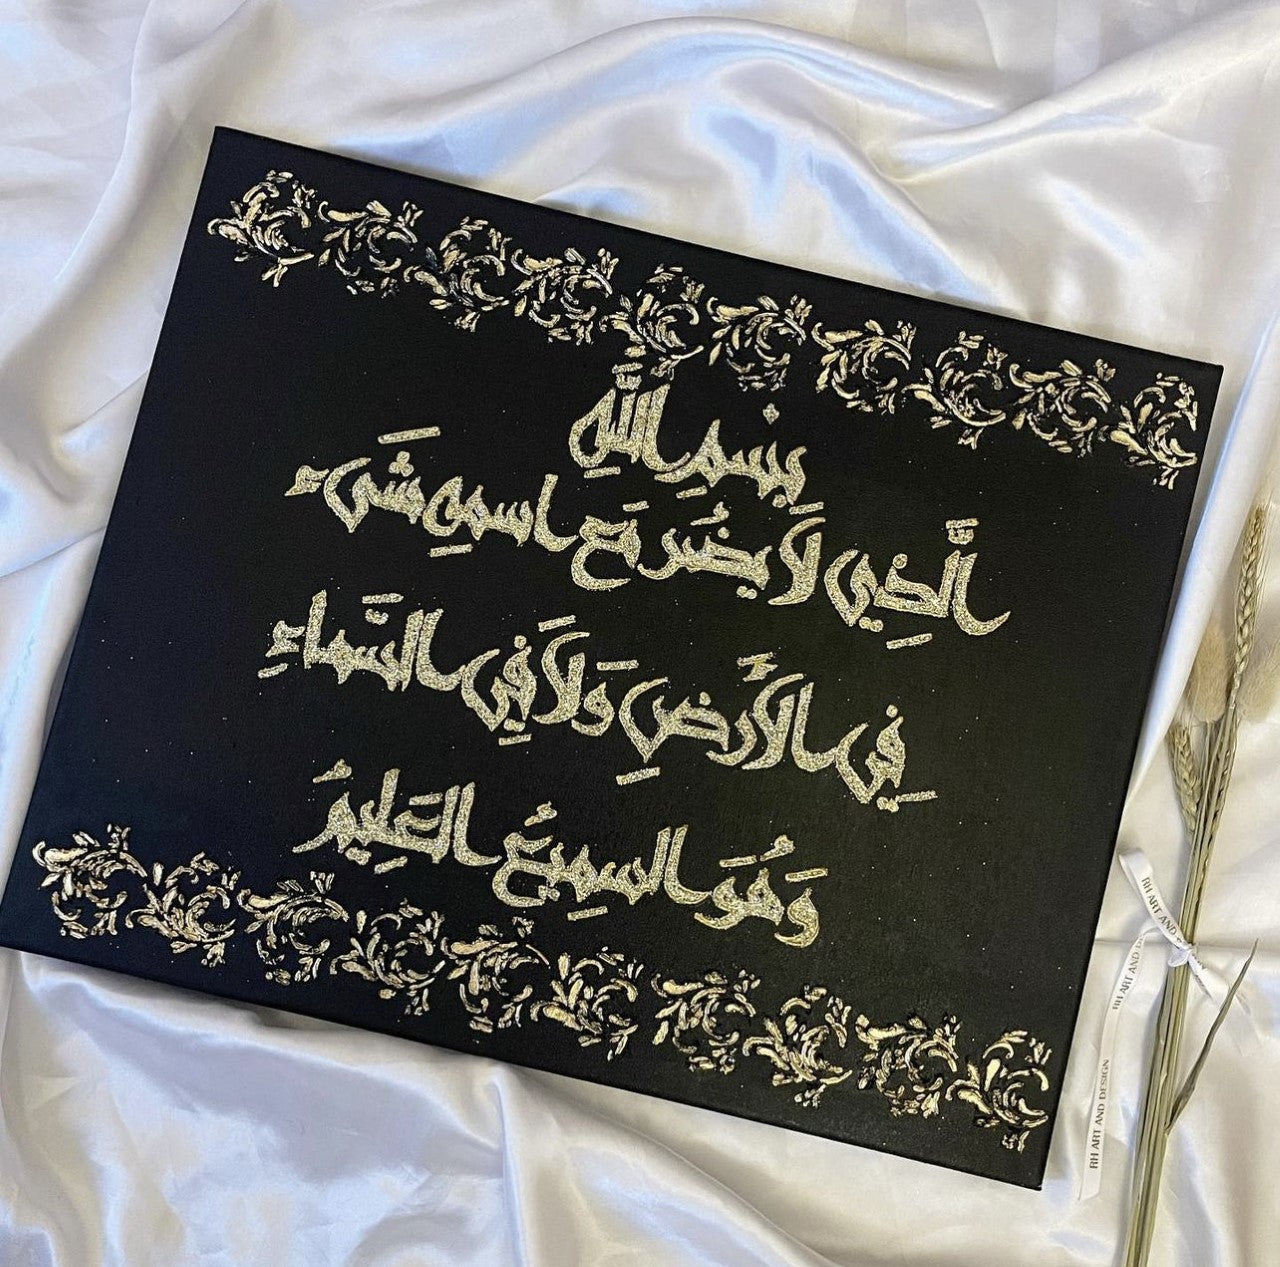 بِسْمِ اللَّهِ
الَّذِي لَا يَضُر مَع اسمهِ شَيء
فِي الأَرْضِ وَلَا فِي السَّمَاءِ
وَهُوَ السمِيعُ العَلِيمُ
RH ART AND
RH ART AND DESIGN